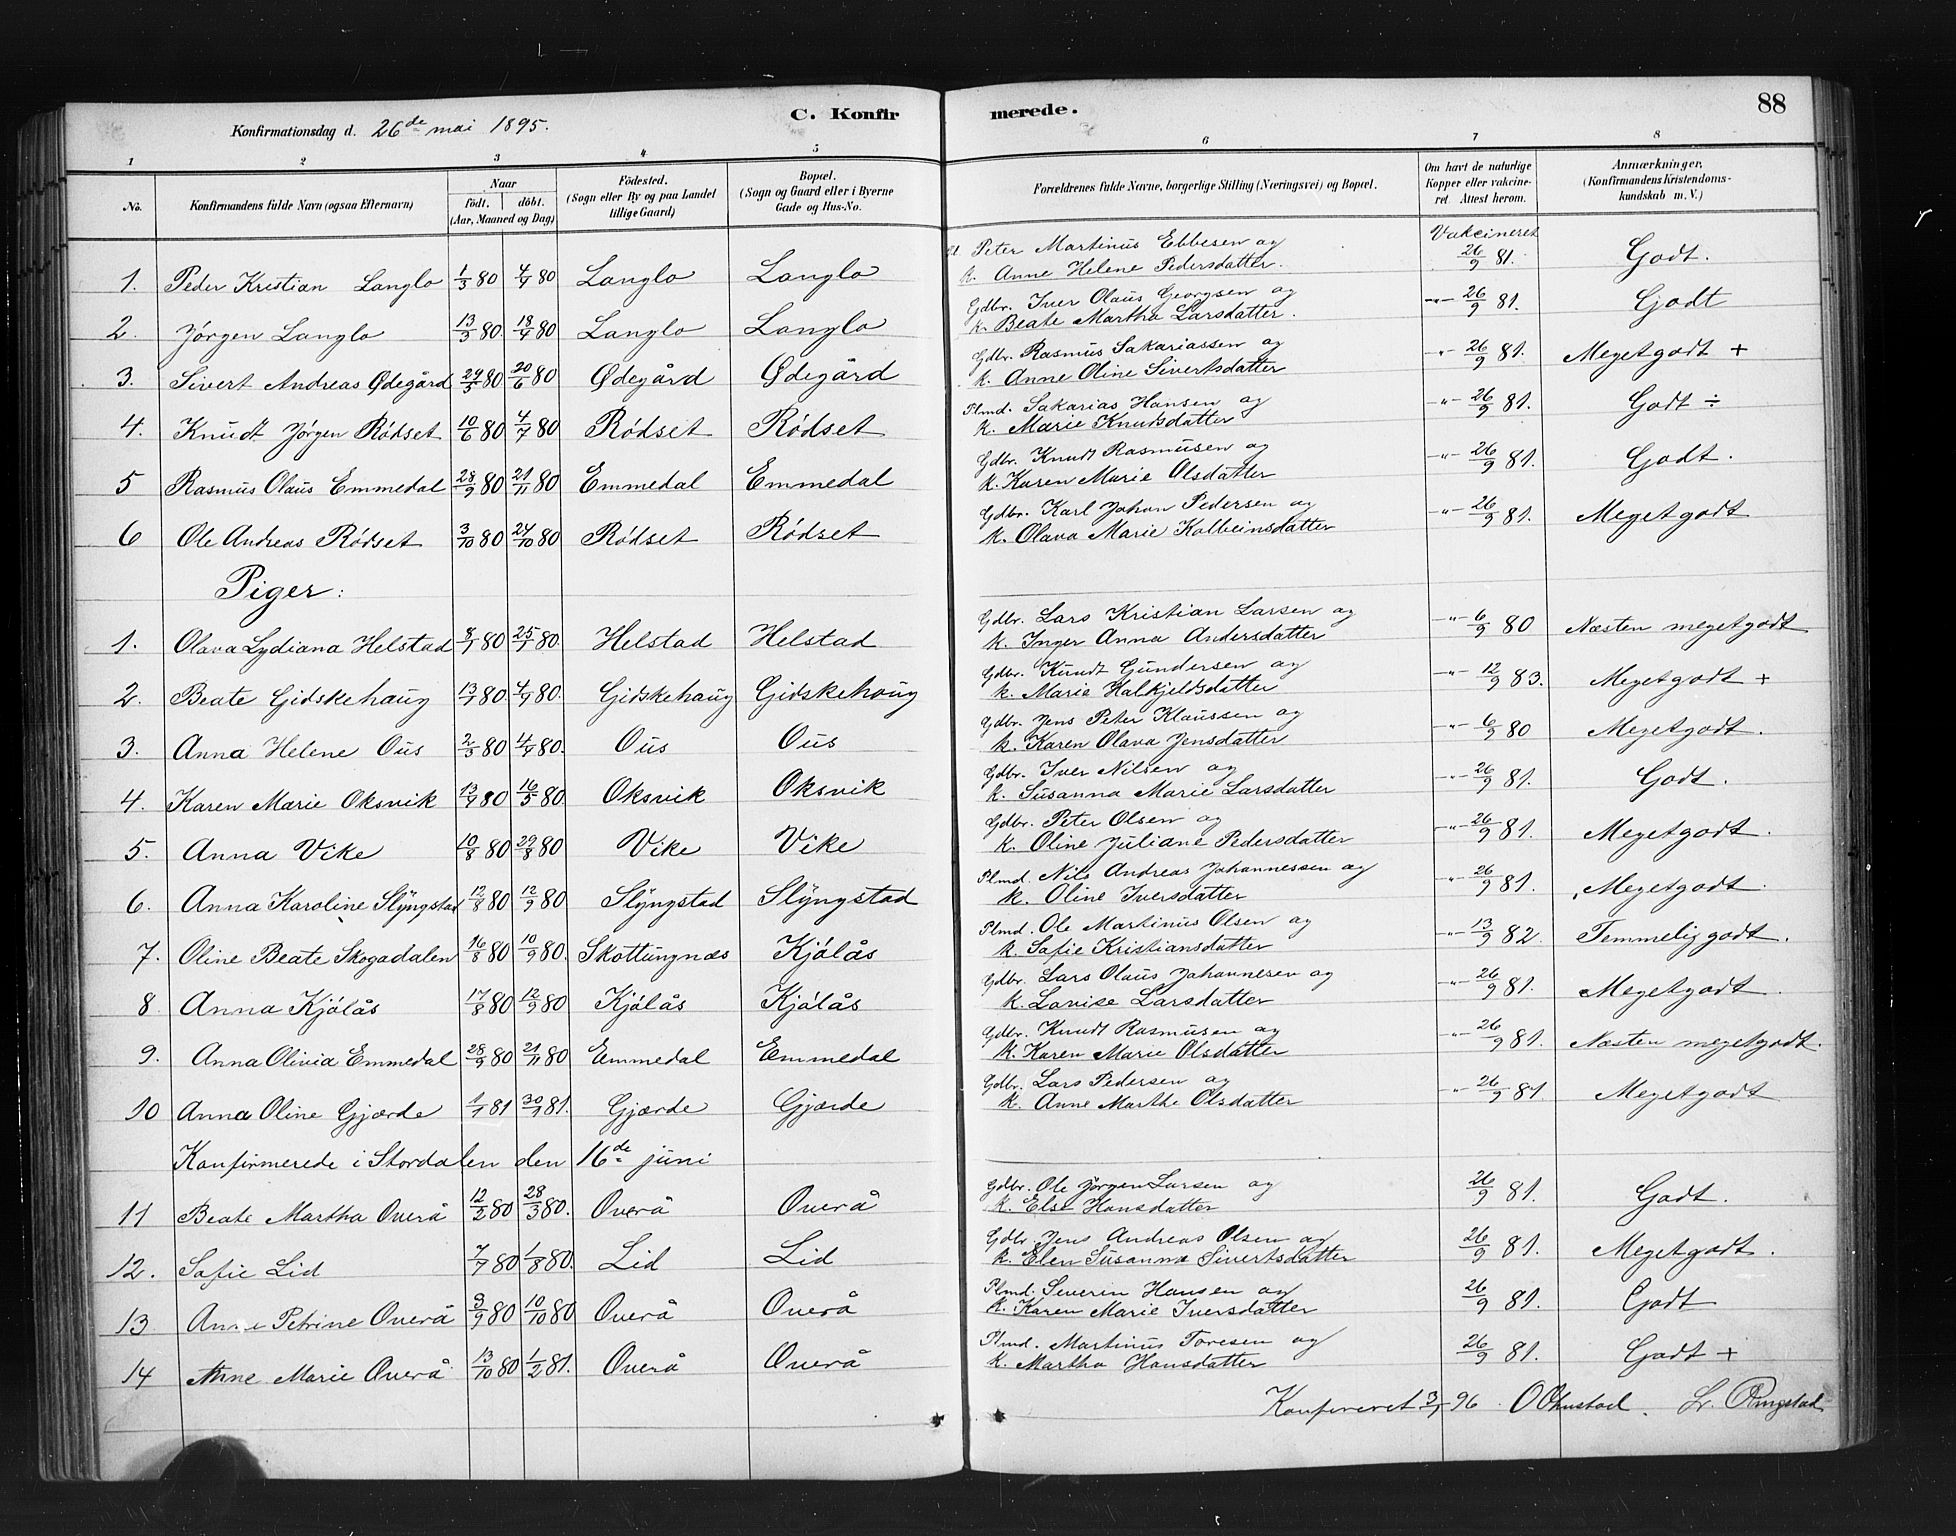 88
C. Konfirmerede.
Konfirmationsdag d. 26de mai 1895.
1 2 3 4 5 6 7 8
No.
Konfirmandens fulde Navn (ogsaa Efternavn)
Naar født. døbt. (Aar, Maaned og Dag)
Födested. (Sogn eller By og paa Landet tillige Gaard)
Bopæl. (Sogn og Gaard eller i Byerne Gade og Hus-No.
Forældrenes fulde Navne, borgerlige Stilling (Næringsvei) og Bopæl.
Om havt de naturlige Kopper eller vakcineret. Attest herom.
Anmærkninger, (Konfirmandens Kristendomskundskab m. V.)
Vakcineret
1. Peder Kristian Langlo 1/3 80 4/4 80 Langlo Langlo Peter Martinus Ebbesen og k. Anne Helene Pedersdatter. 26/9 81. Godt.
2. Jørgen Langlo 13/3 80. 18/4 80 Langlo Langlo Gdbr. Iver Olaus Georgsen og k. Beate Martha Larsdatter. -"- 26/9 81. Godt
3. Sivert Andreas Ødegård 80 20/6 80 Ødegård Ødegård Gdbr. Rasmus Sakariassen og k. Anne Oline Sivertsdatter -"- 26/9 81. Megetgodt +
4. Knudt Jørgen Rødset 10/6 80 4/7 80 Rødset Rødset Plmd. Sakarias Hansen og k. Marie Knutsdatter -"- 26/9 81. Godt ÷
5 Rasmus Olaus Emmedal 28/9 80 21/11 80 Emmedal Emmedal Gdbr. Knudt Rasmusen og k. Karen Marie Olsdatter -"- 26/9 81. Godt.
6 Ole Andreas Rødset 3/10 80 24/10 80 Rødset Rødset Gdbr. Karl Johan Pedersen og k. Olava Marie Kolbeinsdatter -"- 26/9 81. Megetgodt
Piger:
1. Olava Lydiana Helstad 8/1 80 25/1 80. Helstad Helstad Gdbr. Lars Kristian Larsen og k. Inger Anna Andersdatter -"- 6/9 80 Næsten megetgodt
2. Beate Gidskehaug 80. 4/9 80. Gidskehaug Gidskehaug Gdbr. Knudt Gundersen og k. Marie Halkjeldsdatter -"- 12/9 83. Megetgodt +
3. Anna Helene Ous 2/3 80 4/4 80. Ous Ous Gdbr. Jens Peter Klaussen og k. Karen Olava Jensdatter -"- 6/9 80 Megetgodt.
4. Karen Marie Oksvik 13/4 80 16/5 80 Oksvik Oksvik Gdbr. Iver Nilsen og k. Susanna Marie Larsdatter -"- 26/9 81. Godt.
5. Anna Vike 10/8 80 29/8 80 Vike Vike Gdbr. Peter Olsen og k. Oline Juliane Pedersdatter -"- 26/9 81. Megetgodt.
6. Anna Karoline Slyngstad 12/8 80 12/9 80. Slyngstad Slyngstad Plmd. Nils Andreas Johannessen og k. Oline Iversdatter -"- 26/9 81. Megetgodt.
7. Oline Beate Skogadalen 16/8 80 10/9 80. Skottungnæs Kjølås Plmd. Ole Martinus Olsen og k. Sofie Kristiansdatter -"- 13/9 82. Temmelig godt.
8 Anna Kjølås 17/8 80 12/9 80 Kjølås Kjølås Gdbr. Lars Olaus Johannesen og k. Lovise Larsdatter -"- 26/9 81. Megetgodt.
9. Anna Olivia Emmedal 28/9 80 21/11 80 Emmedal Emmedal Gdbr. Knudt Rasmusen og k. Karen Marie Olsdatter -"- 26/9 81. Næsten megetgodt.
10 Anna Oline Gjærde 1/1 81 30/1 81. Gjærde Gjærde Gdbr. Lars Pedersen og k. Anne Marthe Olsdatter -"- 26/9 81. Megetgodt
Konfirmerede i Stordalen den 16de juni
11 Beate Martha Overå 12/2 80 28/3 80. Overå Overå Gdbr. Ole Jørgen Larsen og k. Else Hansdatter 26/9 81. Godt.
12. Sofie Lid 7/7 80 1/8 80. Lid Lid Gdbr. Jens Andreas Olsen og k. Elen Susanna Sivertsdatter 26/9 81. Megetgodt.
13 Anne Petrine Overå 9/9 80 10/10 80 Overå Overå Plmd. Severin Hansen og k. Karen Marie Iversdatter 26/9 81. Godt
14 Anne Marie Overå 13/10 80 1/2 81. Overå Overå Plmd. Martinus Toresen og k. Martha Hansdatter 26/9 81. Godt +
96 Ringstad